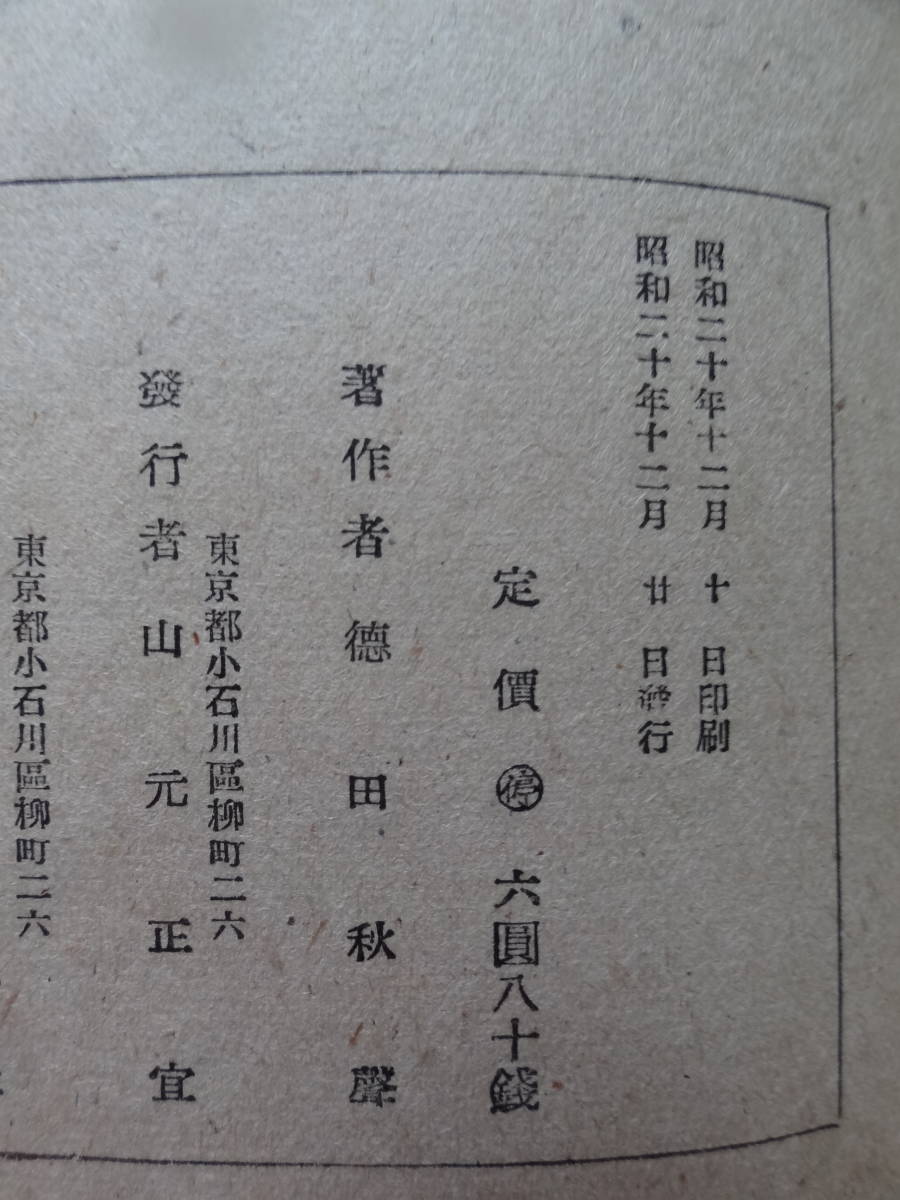 昭和二十年十二月十日印刷
昭和二十年十二月廿日發行
定價㊡六圓八十錢
著作者德田秋聲
東京都小石川區柳町二六
發行者山元正宜
東京都小石川區柳町二六